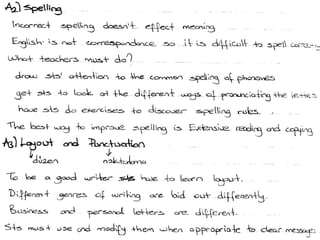 A2) Spelling
Incorrect spelling doesn't effect meaning
English is not correspondence so it is difficult to spell correctly
What teachers must do?
draw sts' attention to the common spelling of phonemes
get sts to look at the different ways of pronunciating the letters
have sts do exercises to discover spelling rules.
The best way to improve spelling is Extensive reading and copying
A3) Layout and Punctuation
düzen noktalama
To be a good writer sts have to learn layout.
Different genres of writing are laid out differently.
Business and personal letters are different.
Sts must use and modify them when appropriate to clear message